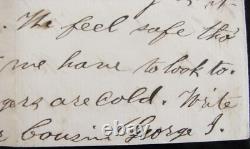 . We feel safe tho'
we have to look to.
gers are cold. Write
Cousin George I.
ebay.com